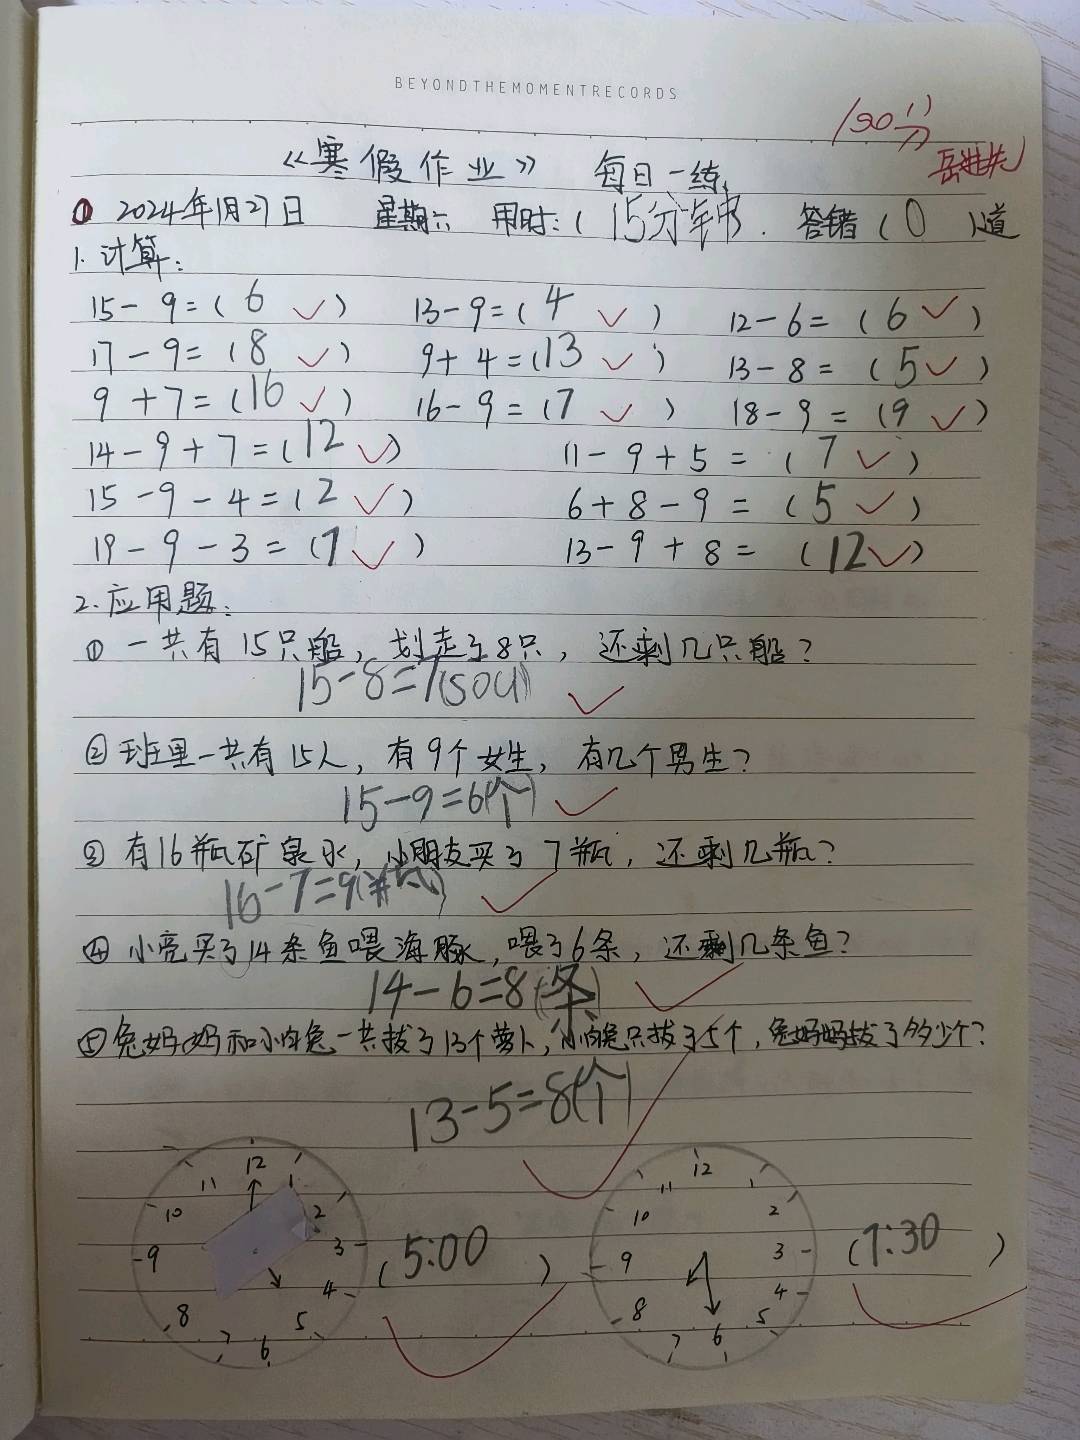 BEYONDTHEMOMENTRECORDS
100分
《寒假作业》 每日一练
① 2024年1月27日 星期六 用时:(15分钟. 答错(0)道
1.计算:
15-9=(6 ✓) 13-9=(4 ✓) 12-6=(6 ✓)
17-9=(8 ✓) 9+4=(13 ✓) 13-8=(5 ✓)
9+7=(16 ✓) 16-9=(7 ✓) 18-9=(9 ✓)
14-9+7=(12 ✓) 11-9+5=(7 ✓)
15-9-4=(2 ✓) 6+8-9=(5 ✓)
19-9-3=(7 ✓) 13-9+8=(12 ✓)
2.应用题:
① 一共有15只船,划走了8只,还剩几只船?
15-8=7(sou) ✓
② 班里一共有15人,有9个女生,有几个男生?
15-9=6(个) ✓
③ 有16瓶矿泉水,小朋友买了7瓶,还剩几瓶?
16-7=9(瓶) ✓
④ 小亮买了14条鱼喂海豚,喂了6条,还剩几条鱼?
14-6=8(条) ✓
⑤ 兔妈妈和小白兔一共拔了13个萝卜,小白兔只拔了5个,兔妈妈拔了多少个?
13-5=8(个) ✓
12 1 2 3 4 5 6 7 8 9 10 11 (5:00) ✓
12 2 3 4 5 6 7 8 9 10 11 (7:30) ✓